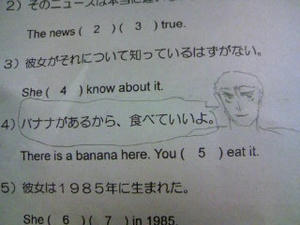 2) そのニュースは本当に違い
The news ( 2 ) ( 3 ) true.
3) 彼女がそれについて知っているはずがない。
She ( 4 ) know about it.
4) バナナがあるから、食べていいよ。
There is a banana here. You ( 5 ) eat it.
5) 彼女は1985年に生まれた。
She ( 6 ) ( 7 ) in 1985.